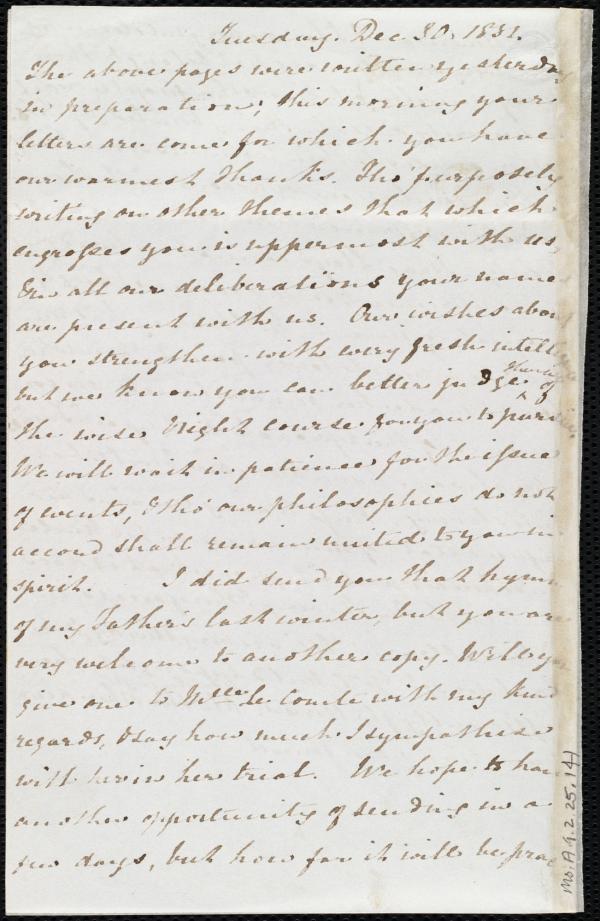 Tuesday. Dec 30. 1851.
The above pages were written yesterday
in preparation; this morning your
letters are come for which you have
our warmest thanks. Tho' purposely
writing on other themes that which
engrosses you is uppermost with us,
& in all our deliberations your names
are present with us. Our wishes about
you strengthen with every fresh
but we know you can better judge than us of
the wise & right course for you to pursue.
We will wait in patience for the issue
of events, & tho' our philosophies do not
accord shall remain united to you in
spirit. I did send you that hymn
of my Father's last winter, but you are
very welcome to another copy. Will you
give one to Mlle Le Comte with my kind
regards, & say how much I sympathise
with her in her trial. We hope to have
another opportunity of sending in a
few days, but how far it will be prac
Ms. A 9. 2. 25. 141